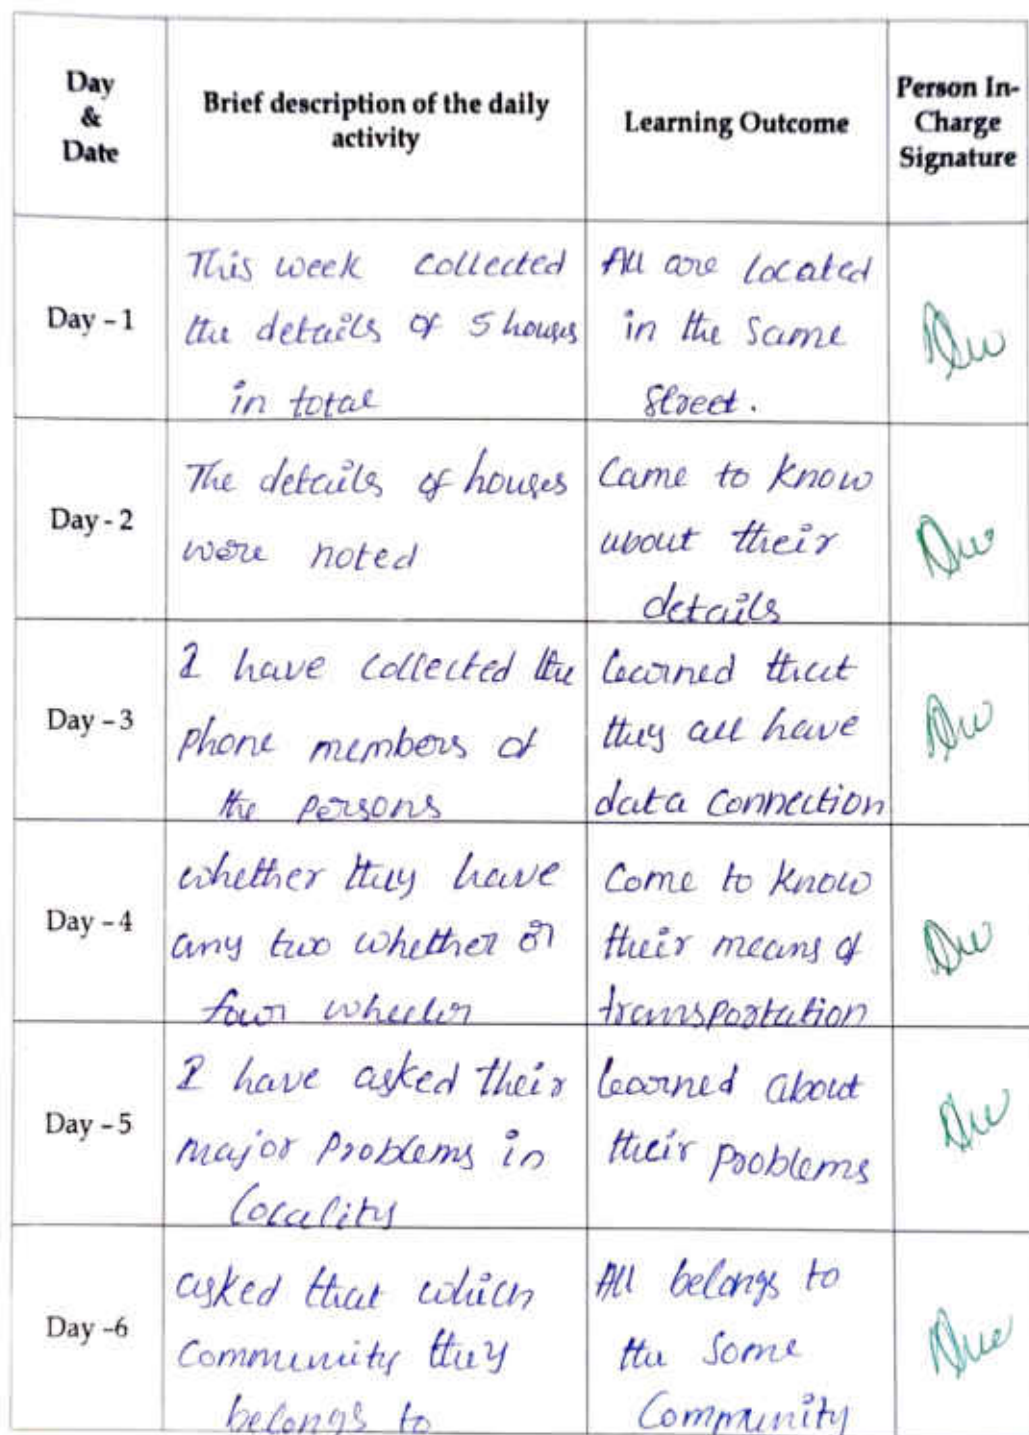 Day
&
Date
Brief description of the daily
activity
Learning Outcome
Person In-
Charge
Signature
Day - 1
This week collected
the details of 5 houses
in total
All are located
in the same
street.
Day - 2
The details of houses
were noted
Came to know
about their
details
Day - 3
I have collected the
phone members of
the persons
learned that
they all have
data connection
Day - 4
whether they have
any two whether or
four wheeler
Come to know
their means of
transportation
Day - 5
I have asked their
major problems in
locality
learned about
their problems
Day -6
asked that which
community they
belongs to
All belongs to
the some
Community